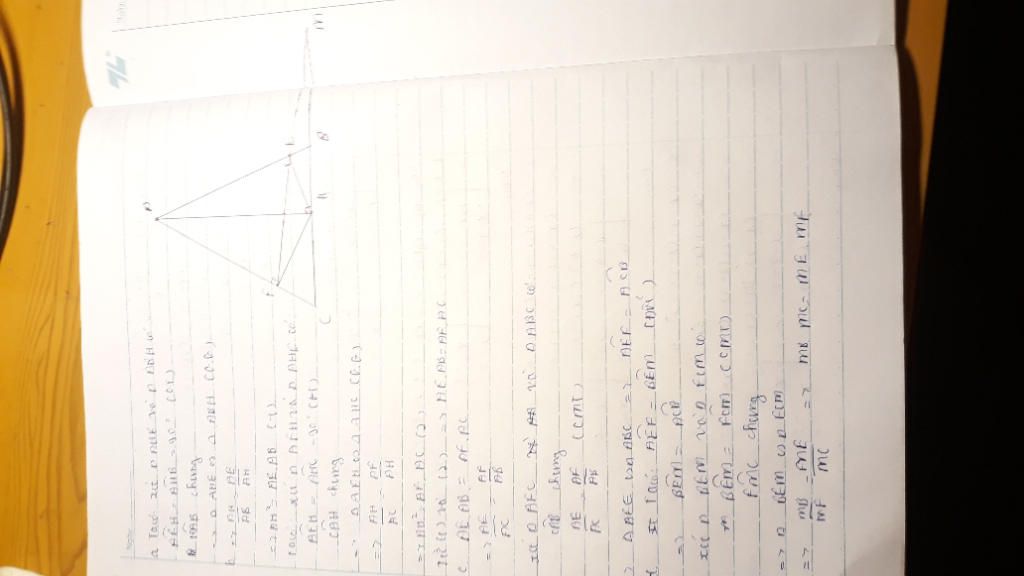 a Ta có xét △AHE và △ABH có
AEH = AHB = 90° (GT)
HAB chung
=> △AHE ∽ △ABH (G.G)
b => AH/AB = AE/AH
=> AH² = AE.AB (1)
Ta có: xét △AFH và △AHC có
AFH = AHC = 90° (GT)
CAH chung
=> △AFH ∽ △AHC (G.G)
=> AH/AC = AF/AH
=> AH² = AF.AC (2)
Từ (1) và (2) => AE.AB = AF.AC
c AE.AB = AF.AC
=> AE/AC = AF/AB
xét △AFE và △ABC có
CAB chung
AE/AC = AF/AB (CMT)
=> △AFE ∽ △ABC => AEF = ACB
Ta có: AEF = BEM (DĐ)
=> BEM = ACB
xét △BEM và △FCM có
BEM = FCM (CMT)
FMC chung
=> △BEM ∽ △FCM
=> MB/MF = ME/MC => MB.MC = ME.MF
A
F
E
C
H
B
M